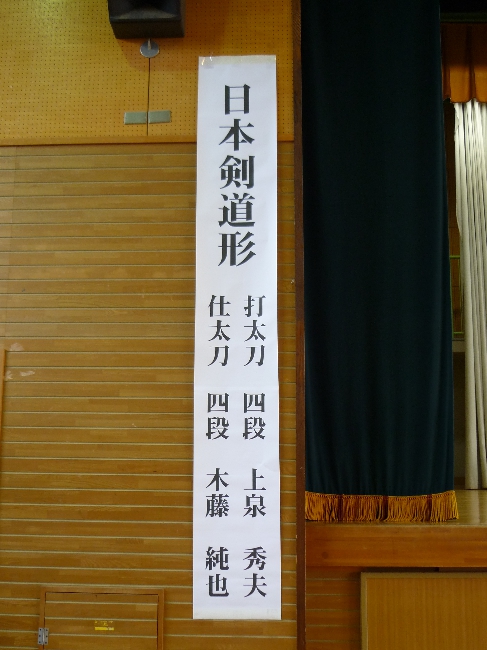 日本剣道形
打太刀 四段 上泉 秀夫
仕太刀 四段 木藤 純也